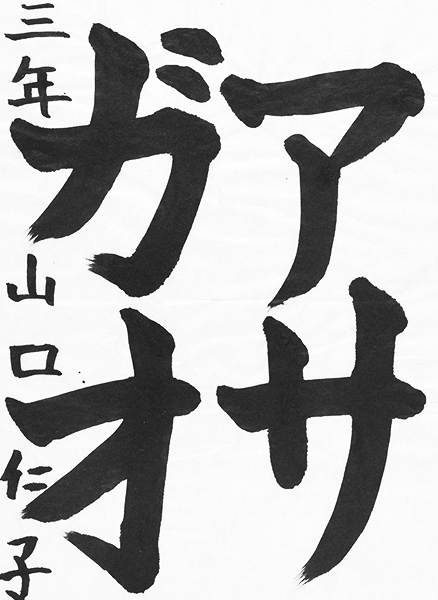 アサ
ガオ
三年 山口仁子